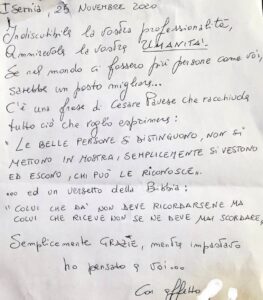 Isernia, 25 Novembre 2020
Indiscutibile la vostra professionalità,
Ammirevole la vostra UMANITA'!
Se nel mondo ci fossero più persone come voi,
sarebbe un posto migliore...
C'è una frase di Cesare Pavese che racchiude
tutto ciò che voglio esprimere:
"LE BELLE PERSONE SI DISTINGUONO, NON SI
METTONO IN MOSTRA, SEMPLICEMENTE SI VESTONO
ED ESCONO, CHI PUÒ LE RICONOSCE".
... ed un versetto della Bibbia:
"COLUI CHE DA' NON DEVE RICORDARSENE MA
COLUI CHE RICEVE NON SE NE DEVE MAI SCORDARE"
Semplicemente GRAZIE, mentre impastavo
ho pensato a voi...
Con affetto